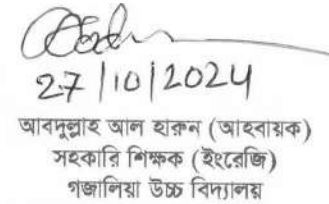 27/10/2024
আবদুল্লাহ আল হারুন (আহবায়ক)
সহকারি শিক্ষক (ইংরেজি)
গজালিয়া উচ্চ বিদ্যালয়